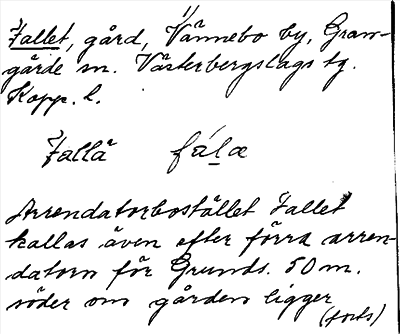 Fallet, gård, Vännebo by, Gran-
gärde sn. Västerbergslags tg.
Kopp. l.
Fallä fála
Arrendatorbostället Fallet
kallas även efter förra arren-
datorn för Grunds. 50 m.
söder om gården ligger
(forts)